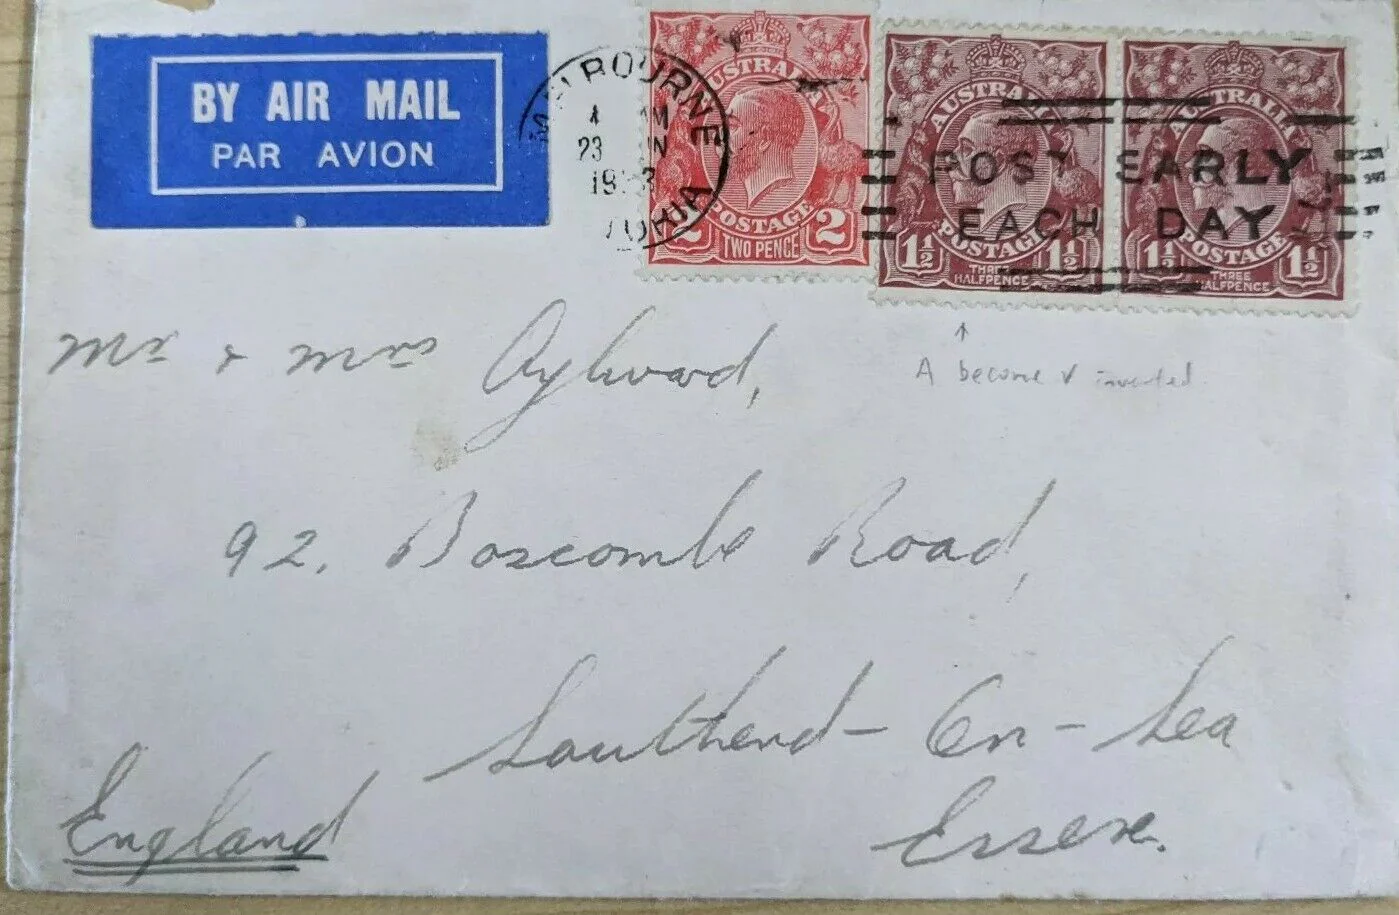 BY AIR MAIL
PAR AVION
MELBOURNE
AM
23
19 3
AUSTRALIA
POSTAGE
2 2
TWO PENCE
AUSTRALIA
POSTAGE
1½ 1½
THREE HALFPENCE
AUSTRALIA
POSTAGE
1½ 1½
THREE HALFPENCE
POST EARLY
EACH DAY
A become V inverted
Mr & Mrs Aylward,
92, Boscombe Road,
Southend-On-Sea
Essex.
England